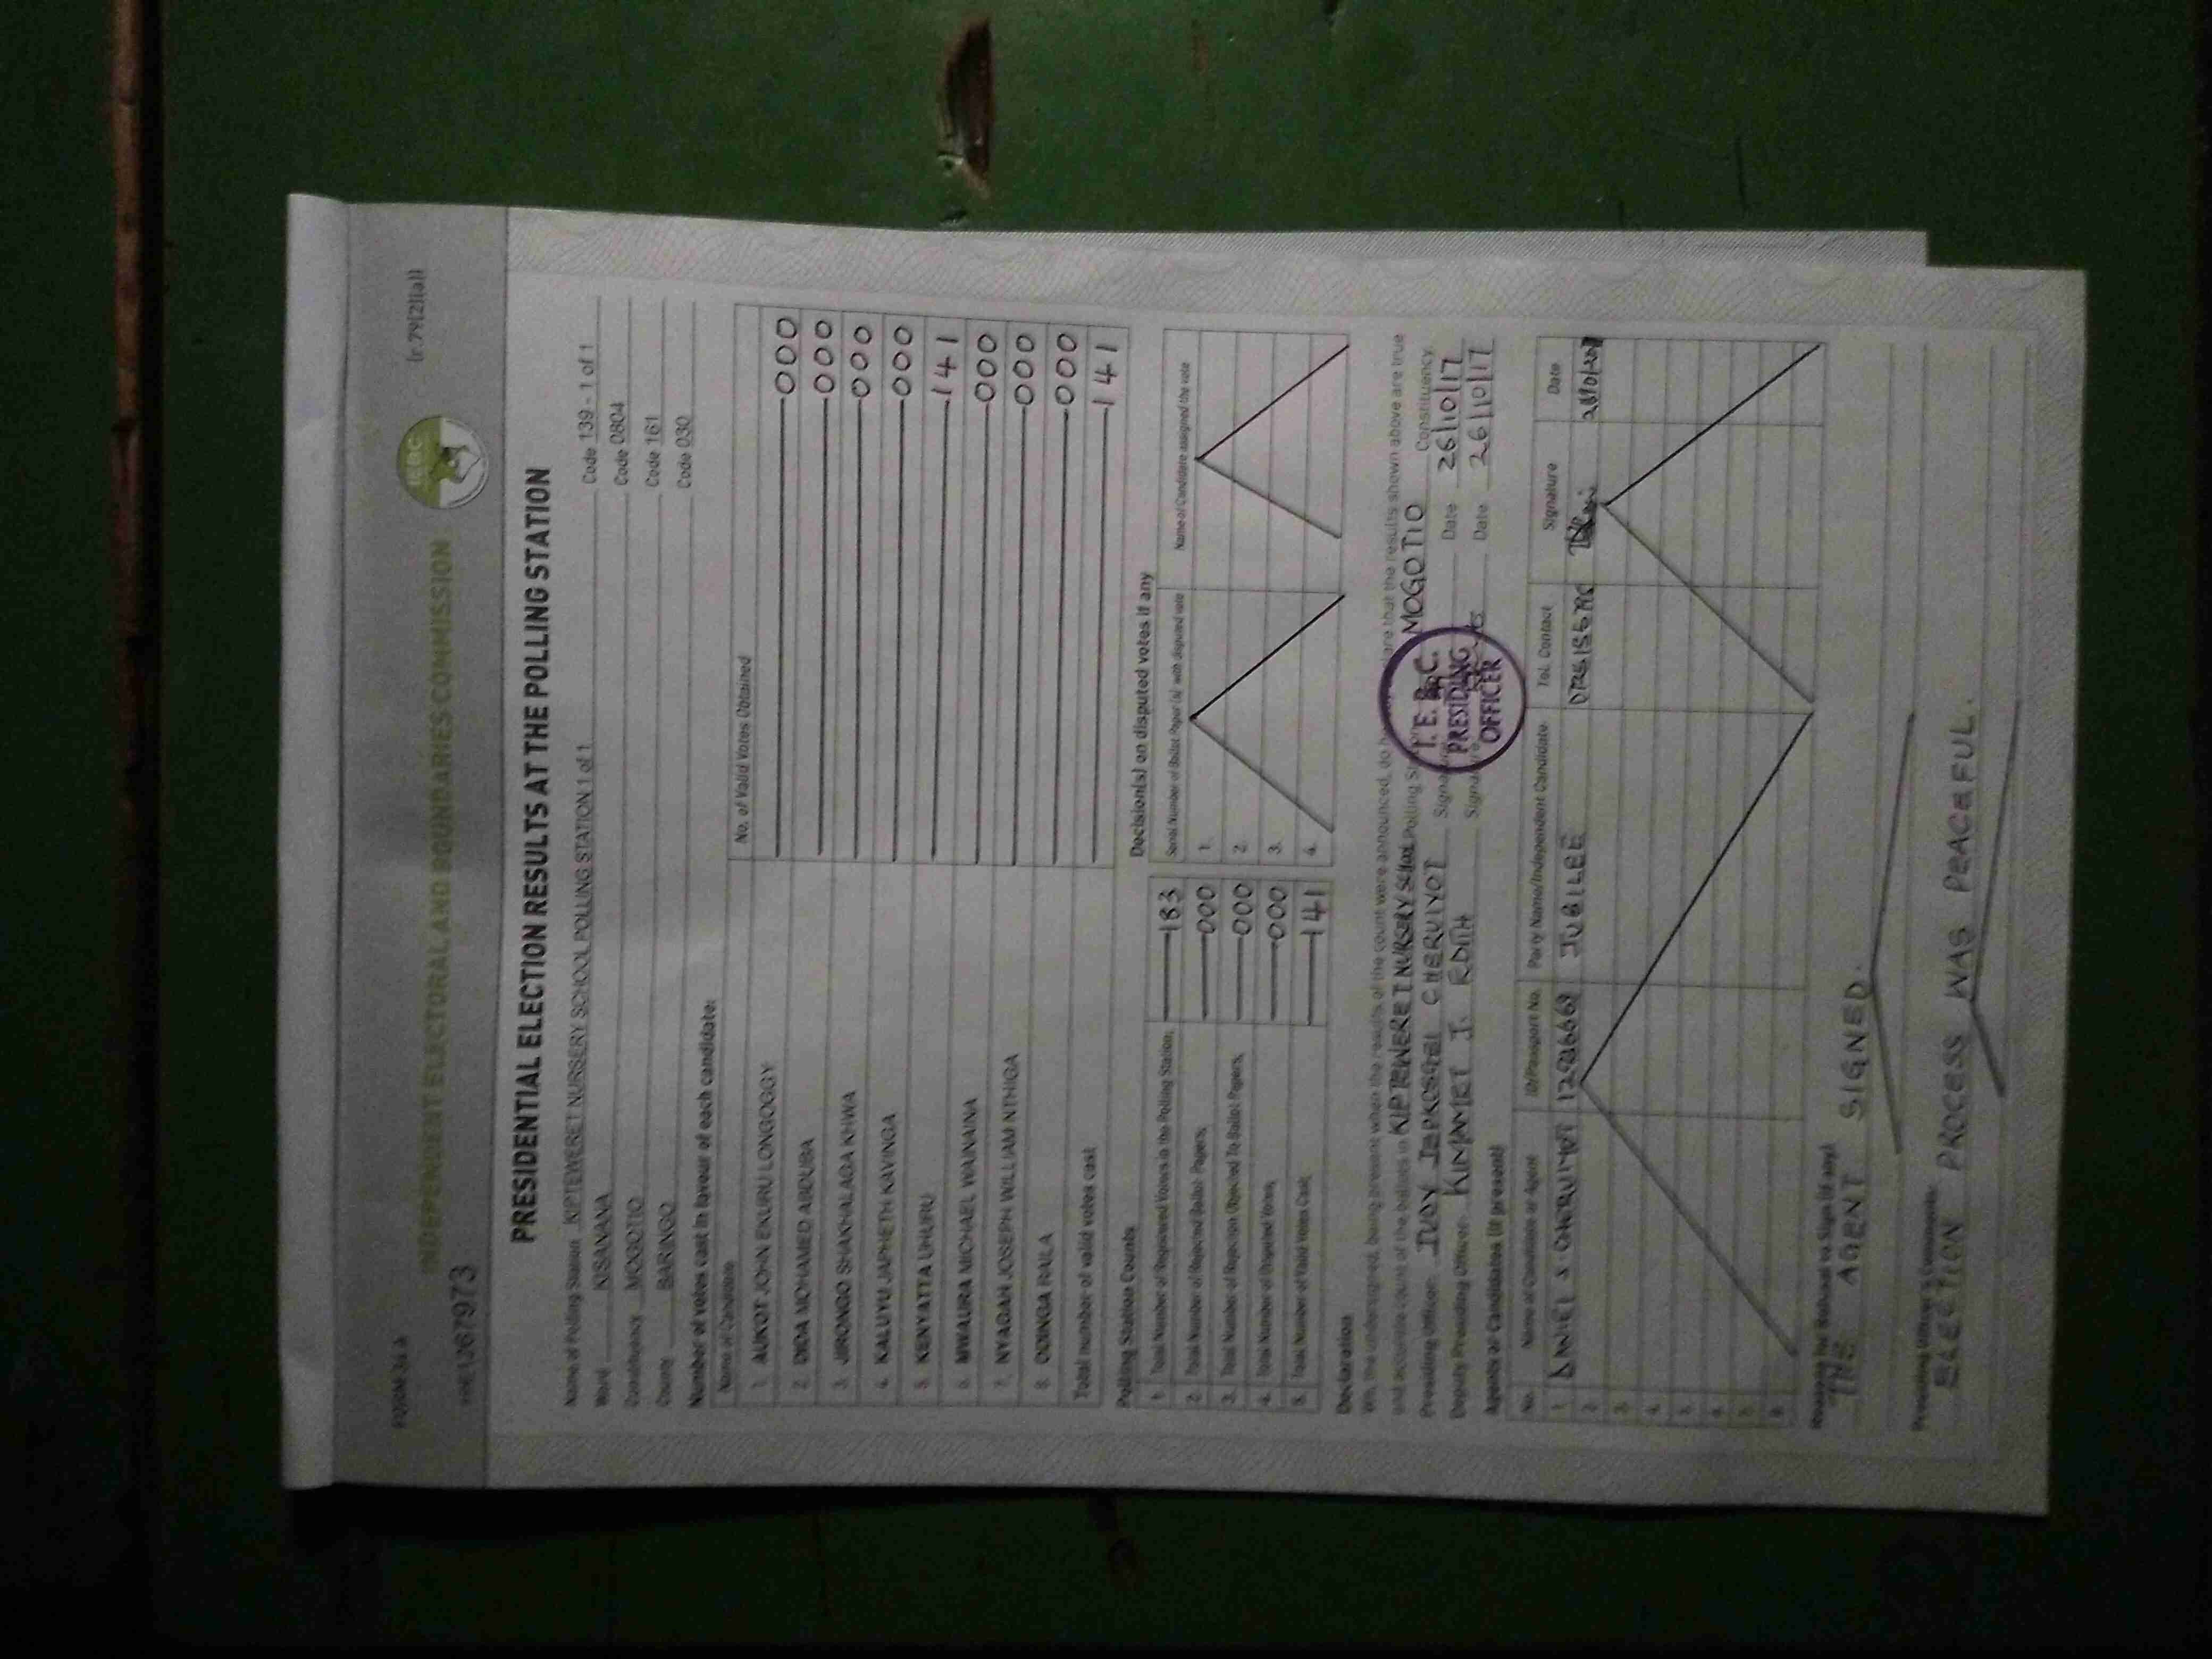 FORM 34 A (r.79(2)(a))
INDEPENDENT ELECTORAL AND BOUNDARIES COMMISSION
IEBC
PRESIDENTIAL ELECTION RESULTS AT THE POLLING STATION
Name of Polling Station KIPTEWERET NURSERY SCHOOL POLLING STATION 1 of 1 Code 139 - 1 of 1
Ward KISANANA Code 0804
Constituency MOGOTIO Code 161
County BARINGO Code 030
Number of votes cast in favour of each candidate:
Name of Candidate No. of Valid Votes Obtained
1. AUKOT JOHN EKURU LONGOGGY 000
2. DIDA MOHAMED ABDUBA 000
3. JIRONGO SHAKHALAGA KHWA 000
4. KALUYU JAPHETH KAVINGA 000
5. KENYATTA UHURU 141
6. MWAURA MICHAEL WAINAINA 000
7. NYAGAH JOSEPH WILLIAM NTHIGA 000
8. ODINGA RAILA 000
Total number of valid votes cast 141
Polling Station Counts
1. Total Number of Registered Voters in the Polling Station; 183
2. Total Number of Rejected Ballot Papers; 000
3. Total Number of Rejection Objected To Ballot Papers; 000
4. Total Number of Disputed Votes; 000
5. Total Number of Valid Votes Cast; 141
Decision(s) on disputed votes if any
Serial Number of Ballot Paper (s) with disputed vote Name of Candidate assigned the vote
1.
2.
3.
4.
Declaration
We, the undersigned, being present when the results of the count were announced, do hereby declare that the results shown above are true
and accurate count of the ballots in KIPTEWERET NURSERY SCHOOL Polling Station MOGOTIO Constituency.
Presiding Officer CHERUIYOT Signature Date 26/10/17
Deputy Presiding Officer KIMAMET J. EDITH Signature Date 26/10/17
I.E.B.C.
PRESIDING
OFFICER
Agents or Candidates (if present)
No. Name of Candidate or Agent ID/Passport No. Party Name/Independent Candidate Tel. Contact Signature Date
1. DANIEL CHERUIYOT JUBILEE
2.
3.
4.
5.
6.
7.
8.
Reasons for Refusal to Sign (if any)
THE AGENT SIGNED.
Presiding Officer's Comments
ELECTION PROCESS WAS PEACEFUL.